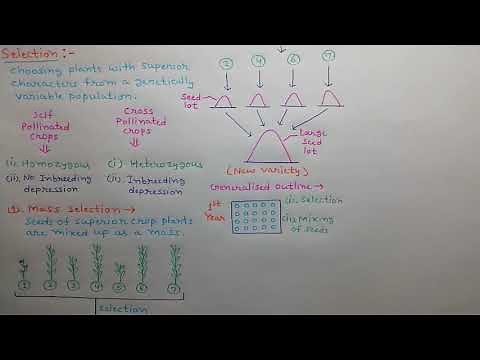 Selection :-
Choosing plants with superior
characters from a genetically
variable population.
Self
Pollinated
crops
Cross
Pollinated
crops
(i). Homozygous
(ii). No Inbreeding
depression
(i) Heterozygous
(ii). Inbreeding
depression
(1). Mass Selection →
Seeds of superior crop plants
are mixed up as a mass.
1
2
3
4
5
6
7
selection
2
4
6
7
Seed
lot
Large
seed
lot
(New variety)
Generalised outline →
1st
Year
(i). Selection
(ii). Mixing
of seeds